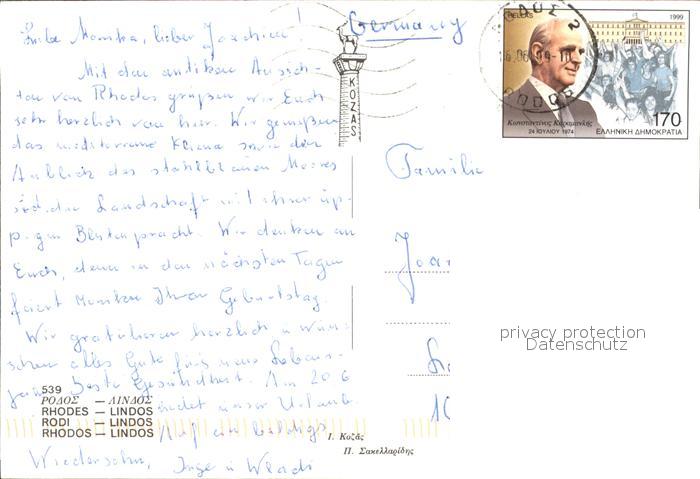 Liebe Monika, lieber Joachim!
Mit den antiken
von Rhodos grüßen wir Euch
sehr herzlich von hier. Wir genießen
das mediterrane Klima sowie den
Anblick des stahlblauen Meeres
der Landschaft mit ihrer üp-
pigen Blütenpracht. Wir denken an
Euch, denn in den nächsten Tagen
feiert Monika Ihren Geburtstag.
Wir gratulieren herzlich u. wün-
schen alles Gute fürs neue Lebens-
jahr Beste Gesundheit. Am 20.6
endet unser Urlaub.
Auf ein baldiges
Wiedersehn, Inge u Wladi
539
ΡΟΔΟΣ — ΛΙΝΔΟΣ
RHODES — LINDOS
RODI — LINDOS
RHODOS — LINDOS
KOZAS
Germany
HELLAS
1999
Κωνσταντίνος Καραμανλής
24 ΙΟΥΛΙΟΥ 1974
170
ΕΛΛΗΝΙΚΗ ΔΗΜΟΚΡΑΤΙΑ
Familie
Joa
privacy protection
Datenschutz
Ι. Κοζάς
Π. Σακελλαρίδης